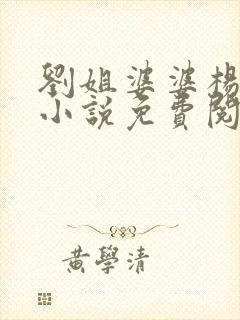 劉姐婆婆楊
小說免費閱
黃學清